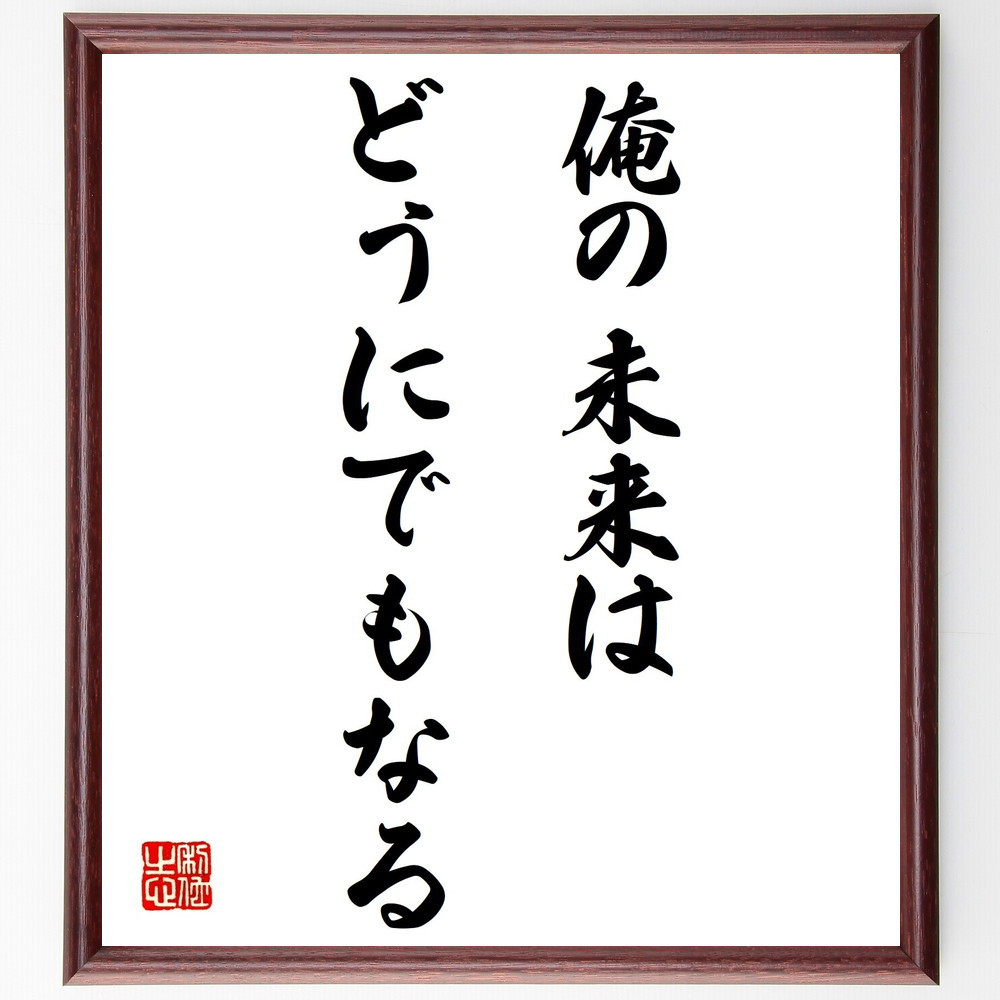 俺の未来は
どうにでもなる